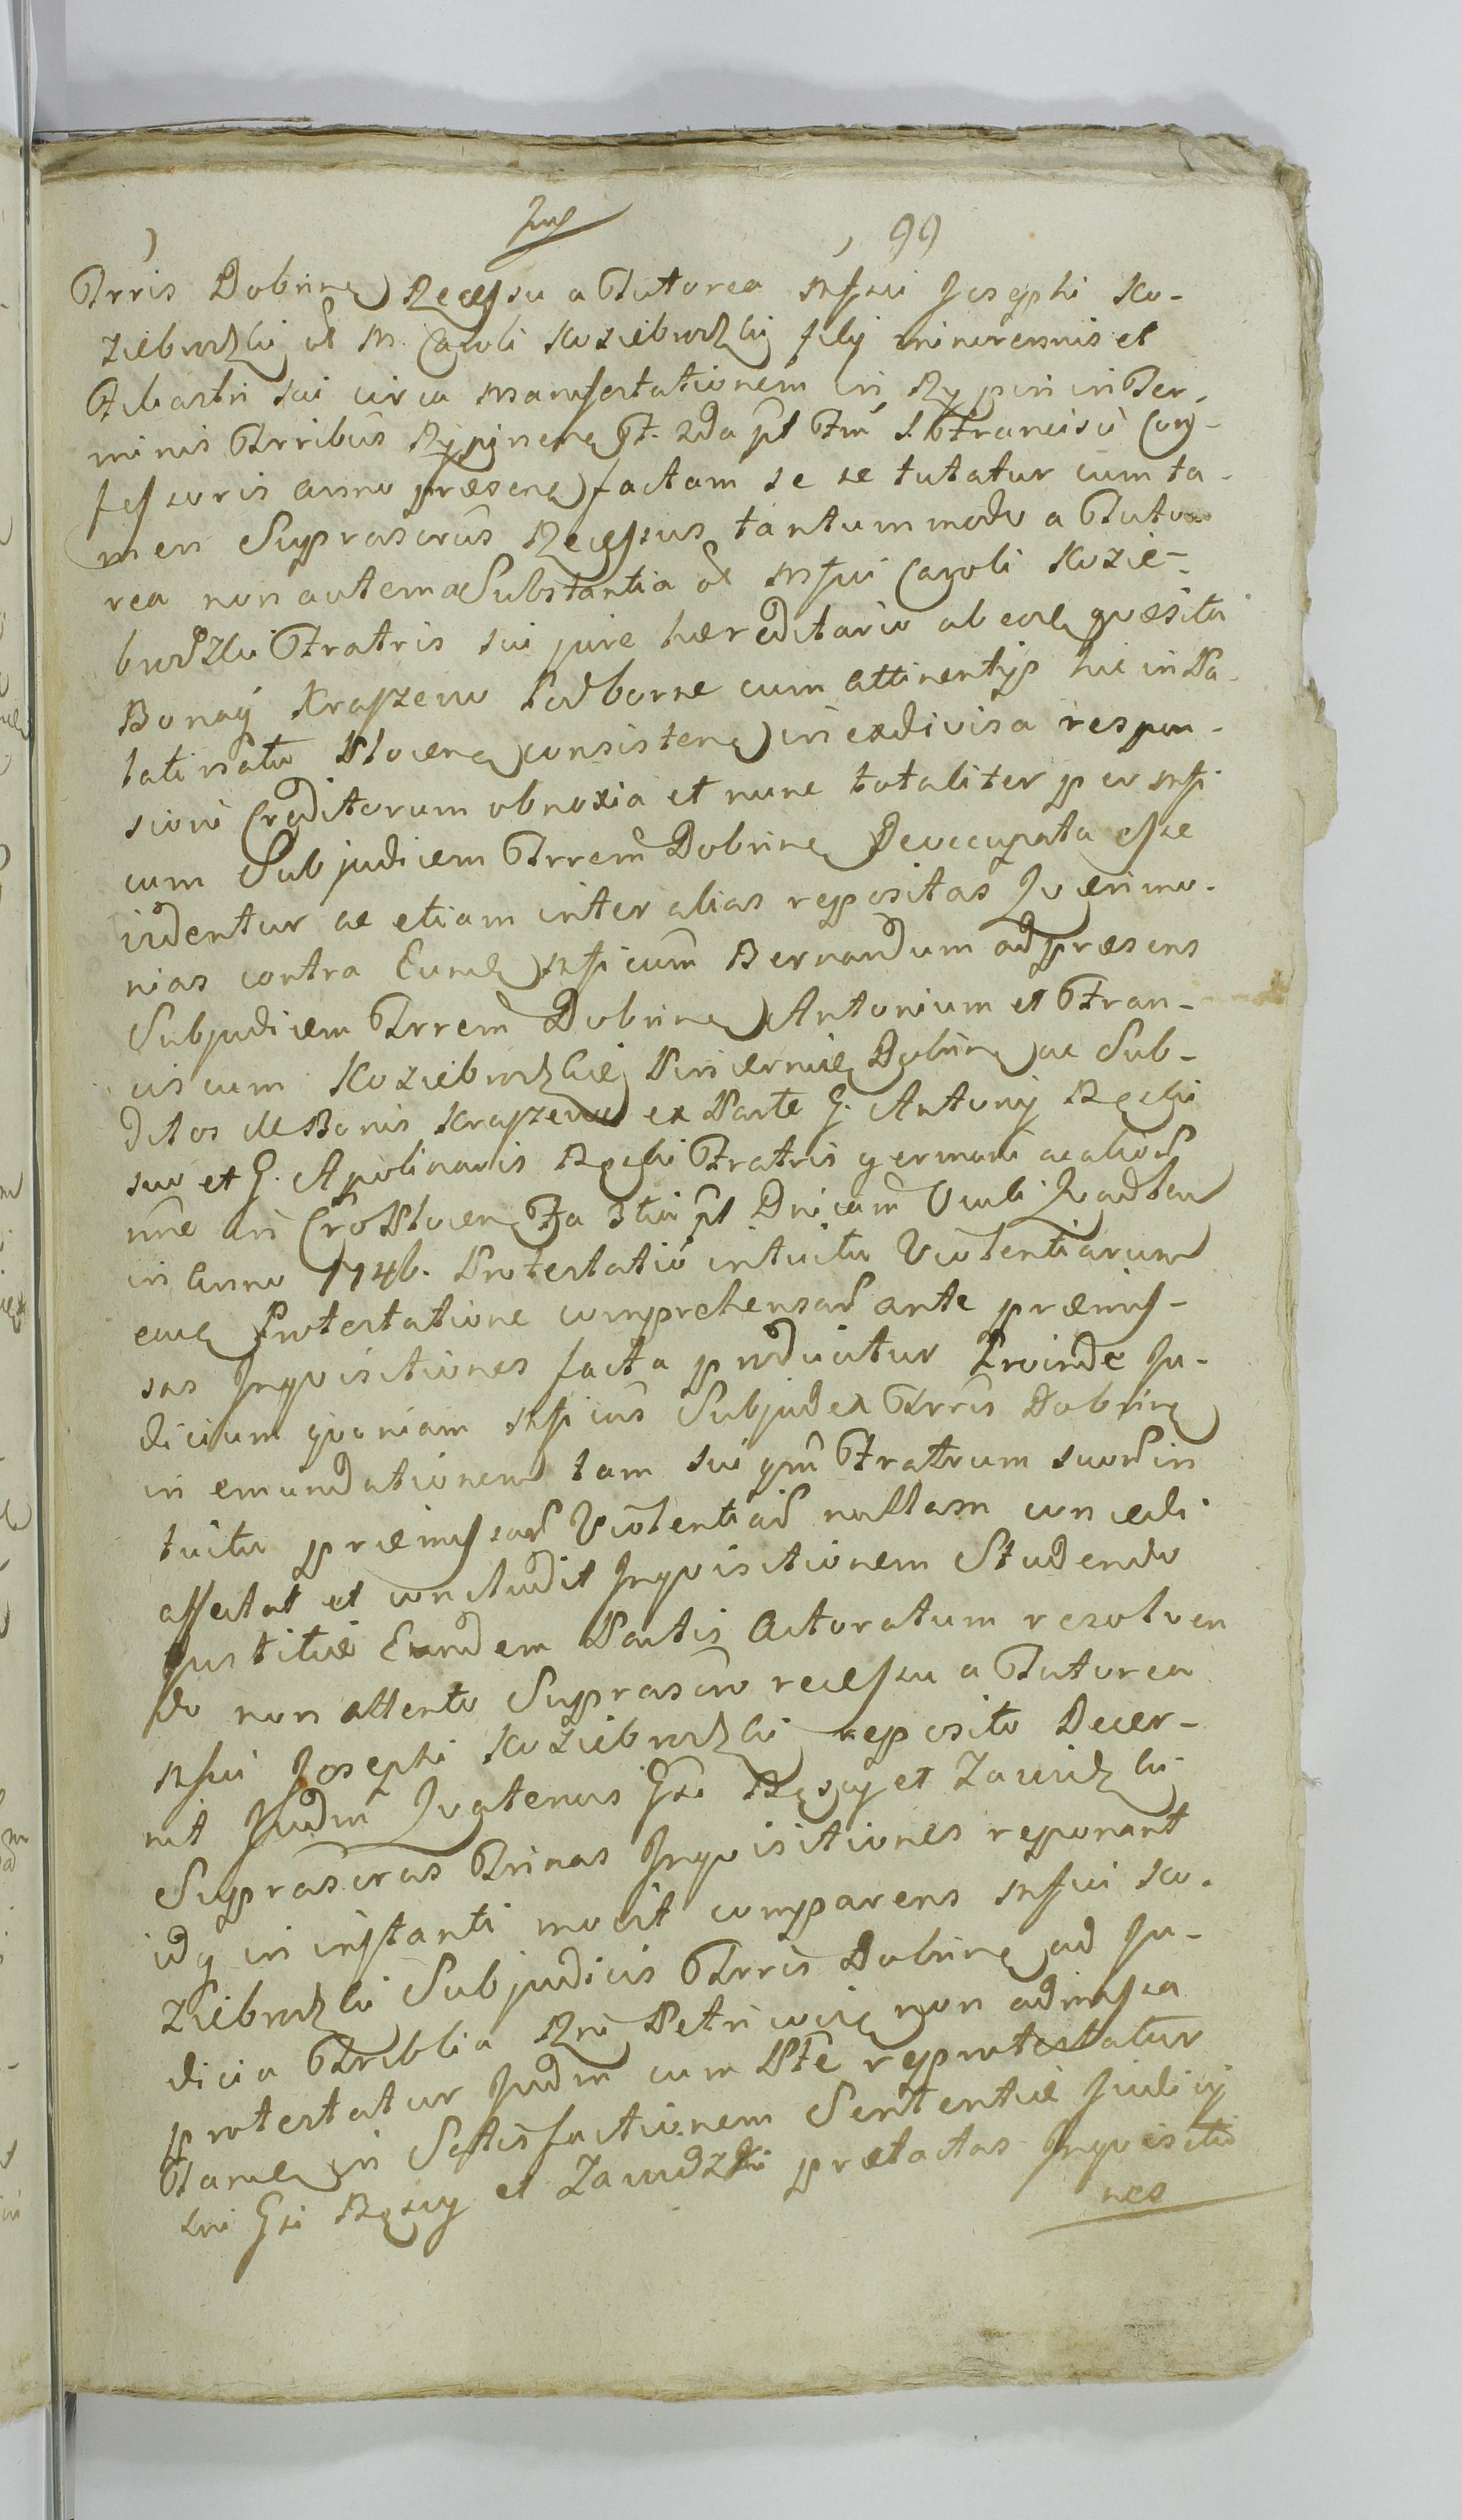 99
Trris Dobrinen Recessu a Tutorea Mfici Josephi Ko-
ziebrodzki et M. Caroli Koziebrodzki filij minorennis et
Fr sui circa Manifestationem in Rypin in Ter-
minis Trribus Rypinen F. 2da pt Fm S. Francisci Con-
fessoris anno præsen factam se se tutatur cum ta-
men Suprascrus Recessus tantummodo a Tuto
rea non autem a Substantia et Mfici Caroli Kozie-
brodzki Fratris sui jure hæreditario ab eode quæsita
Bonaq Kraszewo Podborne cum attinentijs hic in Pa-
latinatu Plocen consisten in exdivisa respon-
sioni Creditorum obnoxia et nunc totaliter per Mfi
cum Subjudicem Trrem Dobrinen Deoccupata esse
videntur ac etiam inter alias repositas Querimo-
nias contra Eund Mficum Bernardum ad præsens
Subjudicem Trrem Dobrinen Antonium et Fran-
ciscum Koziebrodzkie Pincernide Dobrinen ac Sub-
ditos de Bonis Kraszewo ex Parte G. Antonij
suo et G. Apolinaris Fratris germani ac aliod
nne in Cro Plocen Fa 3tia pt Dnicam Oculi Quadlem
in Anno 1746. Protestatio intuitu Violentiarum
eade Protestatione comprehensad ante præmis-
sas Inquisitiones facta producitur Proinde Ju-
dicium quoniam Mficus Subjudex Trris Dobrinen
in emundationem tam sui qm Fratrum suod in
tuitu præmissad Violentiad nullam concedi
affectat et concludit Inquisitionem Studendo
Justitiæ Eundem Partis Actoratum resolven
do non attento Suprascro recessu a Tutorea
Mfici Josephi Koziebrodzki reposito Decer-
nit Judm Quatenus Gsi et Zawidzki
Suprascras Trinas Inquisitiones reponant
idq in instanti movit comparens Mfici Ko-
ziebrodzki Subjudicis Trris Dobrinen ad Ju-
dicia Triblia Rni Petricovie non admissa
protestatur Judm cum Pte reprotestatur
Tande in Sttisfactionem Sententiæ Judicij
sui Gsi et Zawidzki prætactas Inquisitio
nes